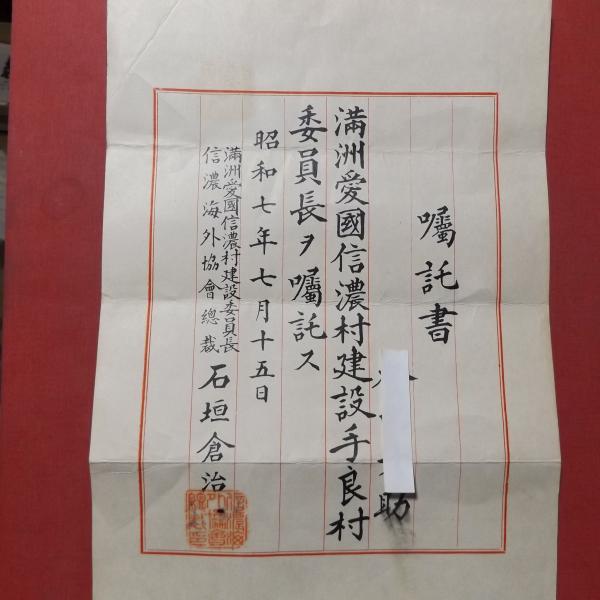 囑託書
助
滿洲愛國信濃村建設手良村
委員長ヲ囑託ス
昭和七年七月十五日
滿洲愛國信濃村建設委員長
信濃海外協會總裁
石垣倉治